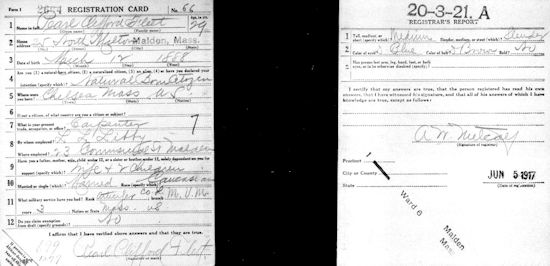 Form 1
REGISTRATION CARD
No. 66
1 Name in full Pearl Clifford
(Given name) (Family name)
Age, in yrs. 29
2 Home address North Malden, Mass.
3 Date of birth March 12
(Month) (Day) (Year)
4 Are you (1) a natural-born citizen, (2) a naturalized citizen, (3) an alien, (4) or have you declared your
intention (specify which)? Natural Born Citizen
5 Where were you born? Chelsea Mass U.S.
6 If not a citizen, of what country are you a citizen or subject?
7 What is your present trade, occupation, or office? Carpenter 7
8 By whom employed? Libby
Where employed? 23 Commercial St Malden
9 Have you a father, mother, wife, child under 12, or a sister or brother under 12, solely dependent on you for
support (specify which)? Wife & 2 Children
10 Married or single (which)? Married Race (specify which)? Caucasian
11 What military service have you had? Rank branch M.V.M.
years 3 Nation or State Mass. US
12 Do you claim exemption from draft (specify grounds)? No
I affirm that I have verified above answers and that they are true.
Pearl Clifford
20-3-21. A
REGISTRAR'S REPORT
1 Tall, medium, or short (specify which)? Medium Slender, medium, or stout (which)? Slender
2 Color of eyes? Blue Color of hair? Brown Bald? No
3 Has person lost arm, leg, hand, foot, or both eyes, or is he otherwise disabled (specify)?
I certify that my answers are true, that the person registered has read his own
answers, that I have witnessed his signature, and that all of his answers of which I have
knowledge are true, except as follows:
(Signature of registrar)
Precinct
City or County
State
JUN 5 1917
(Date of registration)
Ward 6
Malden
Mass.